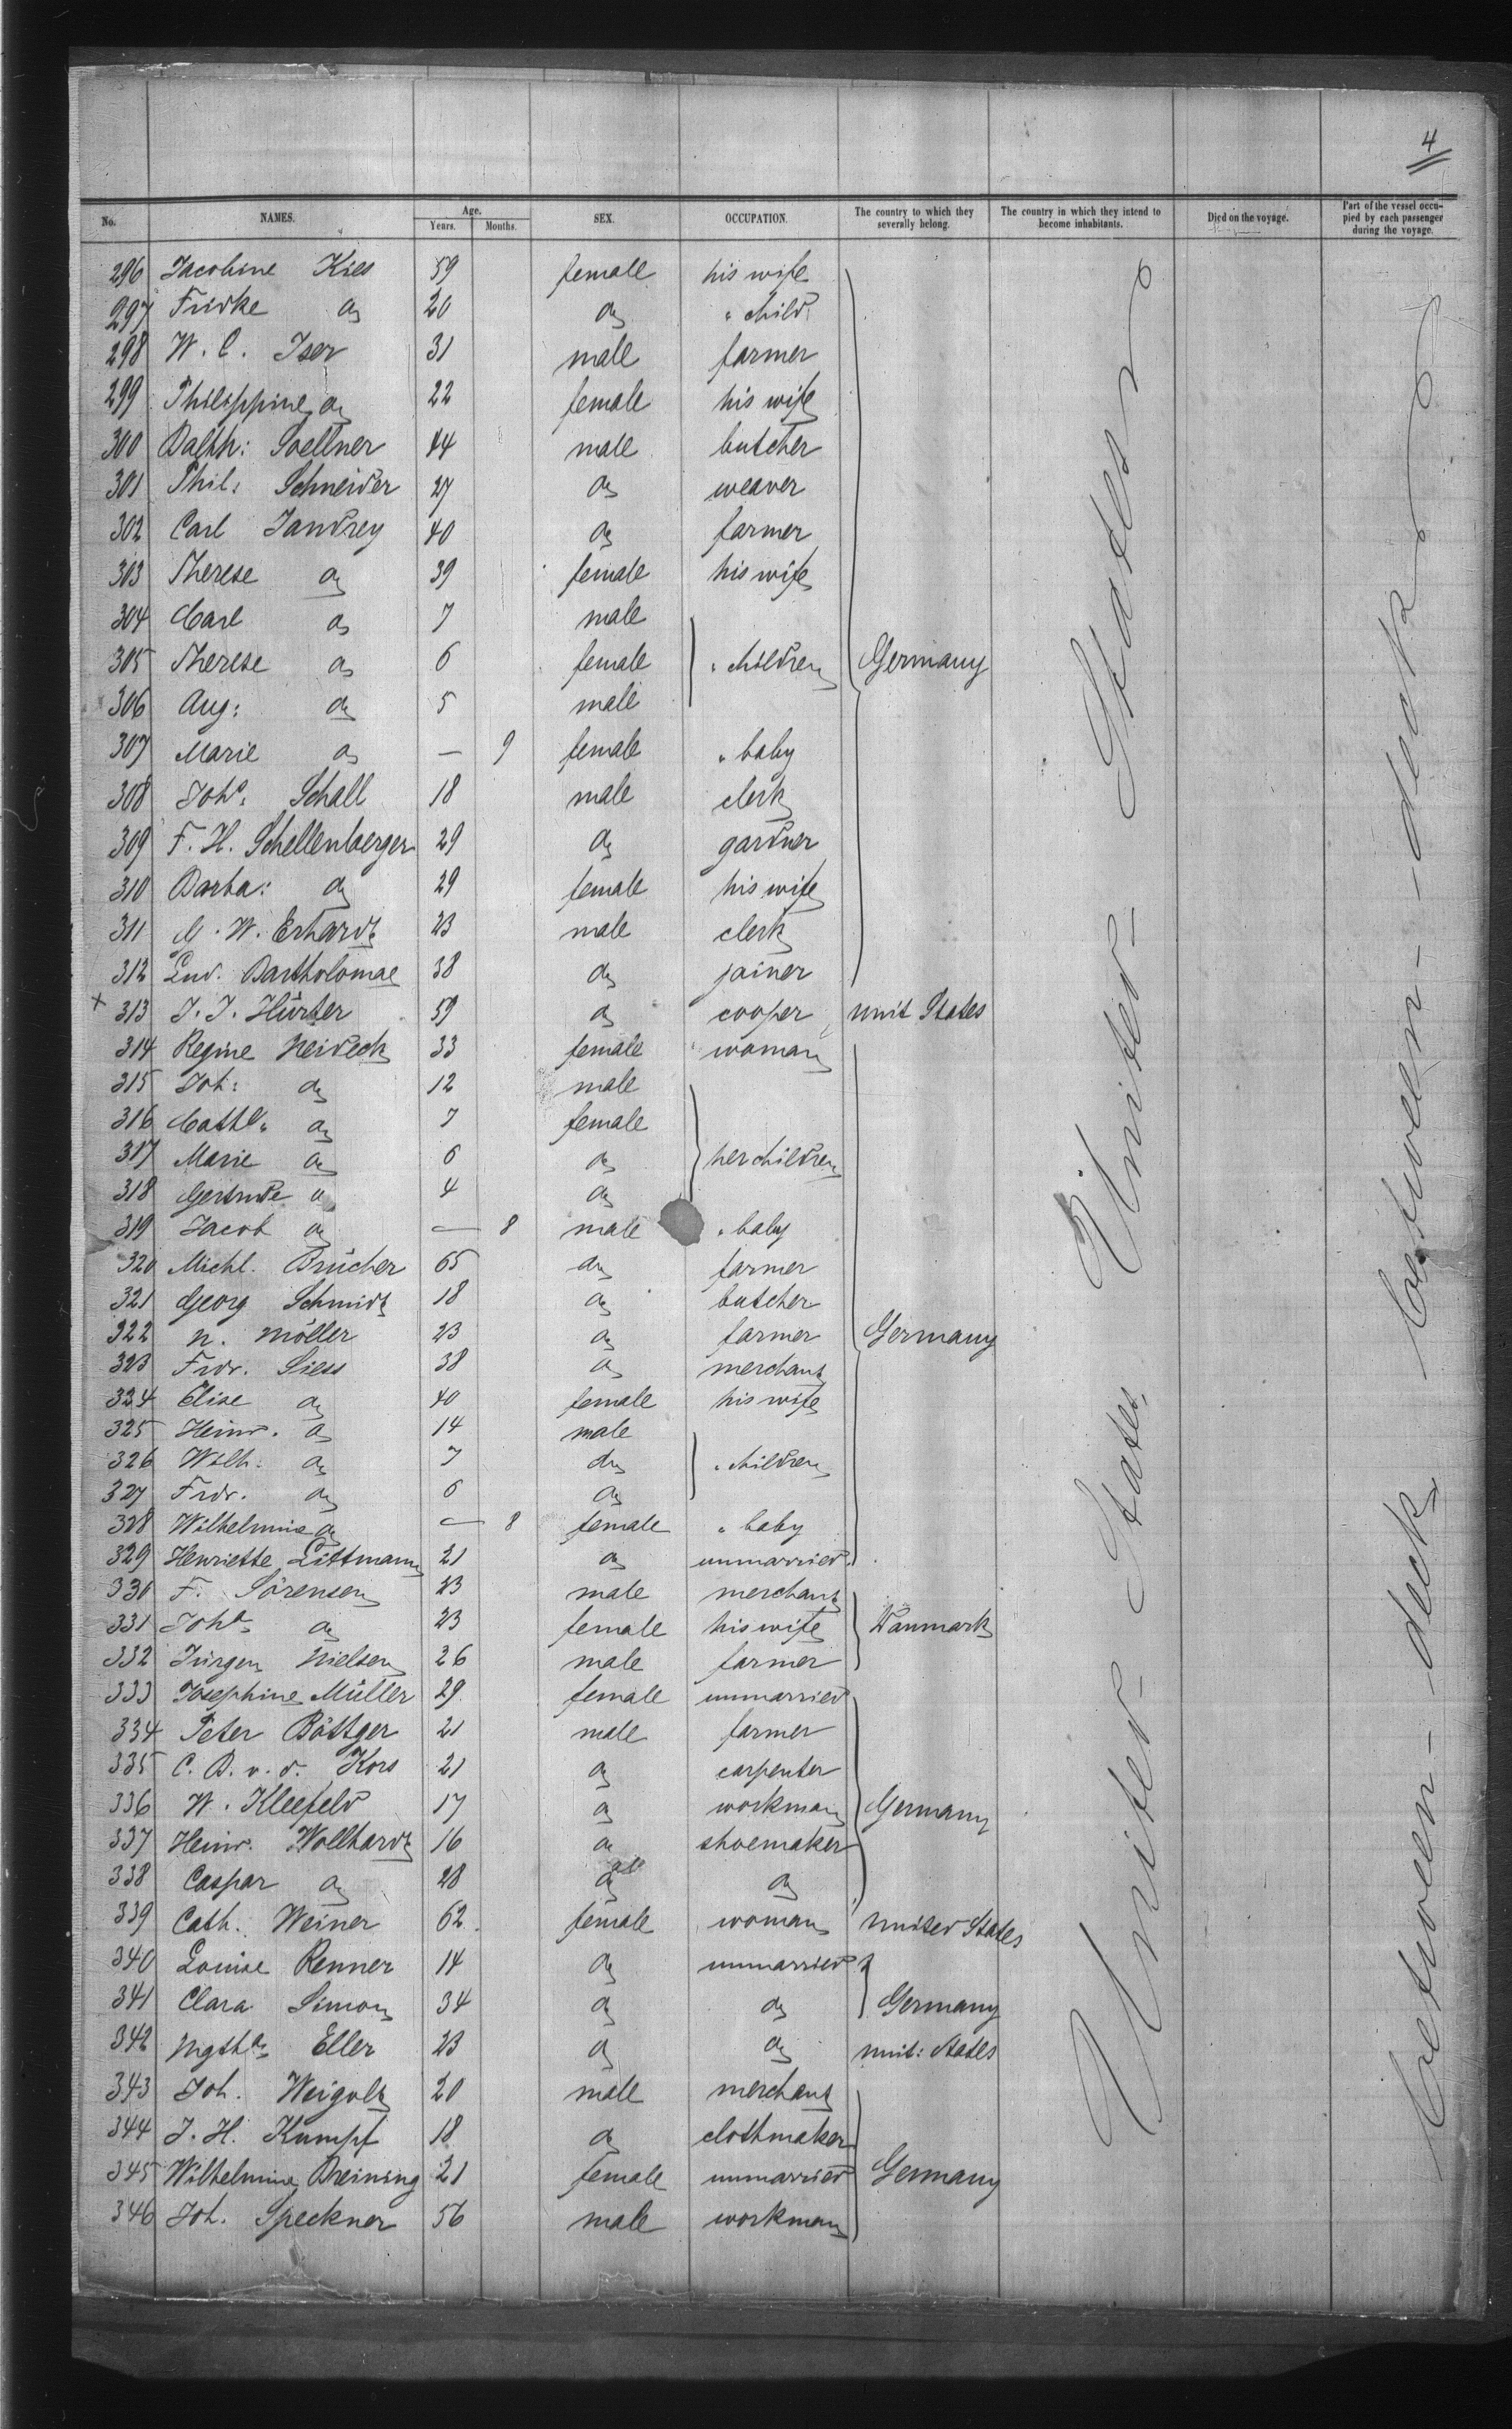 4
No. NAMES. Age. Years. Months. SEX. OCCUPATION. The country to which they severally belong. The country in which they intend to become inhabitants. Died on the voyage. Part of the vessel occupied by each passenger during the voyage.
296 Jacobine Kies 59 female his wife
297 Fridke do 20 do " child
298 W. C. Iser 31 male farmer
299 Philippine do 22 female his wife
300 Balth: Soellner 44 male butcher
301 Phil: Schneider 27 do weaver
302 Carl Jandrey 40 do farmer
303 Therese do 39 female his wife
304 Carl do 7 male
305 Therese do 6 female " children Germany
306 Aug: do 5 male
307 Marie do — 9 female " baby
308 Joha: Schall 18 male clerk
309 F. H. Schellenberger 29 do gardner
310 Barba: do 29 female his wife
311 G. W. Erhardt 23 male clerk
312 Lud. Bartholomae 38 do joiner
x 313 J. J. Hürter 59 do cooper unit States
314 Regine Neideck 33 female woman
315 Joh: do 12 male
316 Cath: do 7 female
317 Marie do 6 do her children
318 Gertrude do 4 do
319 Jacob do — 8 male " baby
320 Michl. Brücher 65 do farmer
321 Georg Schmidt 18 do butcher
322 N. Möller 23 do farmer Germany
323 Frdr. Siess 38 do merchant
324 Elise do 40 female his wife
325 Heinr. do 14 male
326 Wilh. do 7 do " children
327 Frdr. do 6 do
328 Wilhelmine do — 8 female " baby
329 Henriette Littmann 21 do unmarried
330 F. Sörensen 23 male merchant
331 Joha: do 23 female his wife Danmark
332 Jürgen Nielsen 26 male farmer
333 Josephine Müller 29 female unmarried
334 Peter Böttger 21 male farmer
335 C. B. v. d. Kors 21 do carpenter
336 W. Kleefeld 17 do workman Germany
337 Heinr. Wollhardt 16 do shoemaker
338 Caspar do 28 do do
339 Cath. Weiner 62 female woman United States
340 Louise Renner 14 do unmarried
341 Clara Simon 34 do do Germany
342 Eller 23 do do unit: States
343 Joh. Weigolt 20 male merchant
344 J. H. Kumpf 18 do clothmaker
345 Wilhelmine Breining 21 female unmarried Germany
346 Joh. Speckner 56 male workman
United States United States
between deck between deck